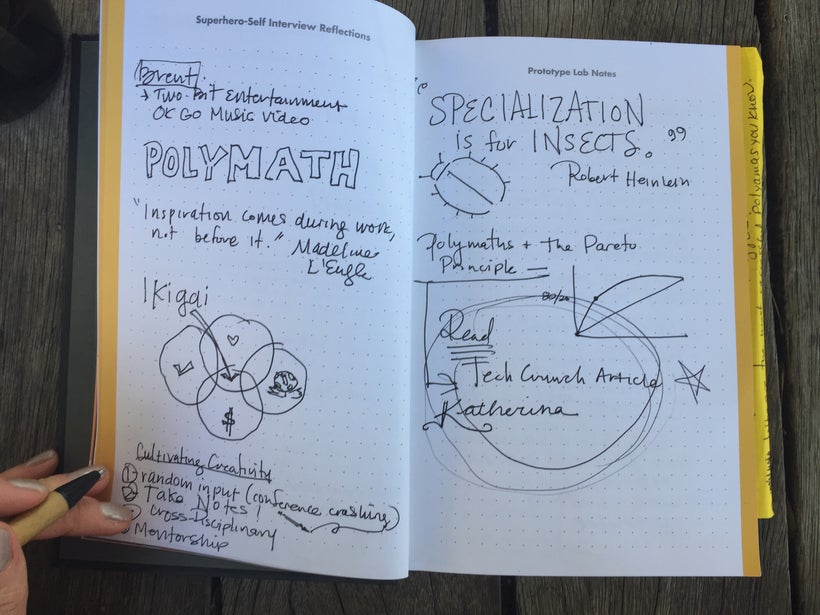 Superhero-Self Interview Reflections
Brent.
→ Two-Bit Entertainment
OK GO Music Video
POLYMATH
"Inspiration comes during work,
not before it." Madeline
L'Engle
Ikigai
$
Cultivating Creativity
① random input (conference crashing)
② Take Notes!
③ cross-Disciplinary
Mentorship
Prototype Lab Notes
"SPECIALIZATION
is for INSECTS."
Robert Heinlein
Polymaths + the Pareto
Principle
80/20
Read
Tech Crunch Article
Katherina
polymaths you know.